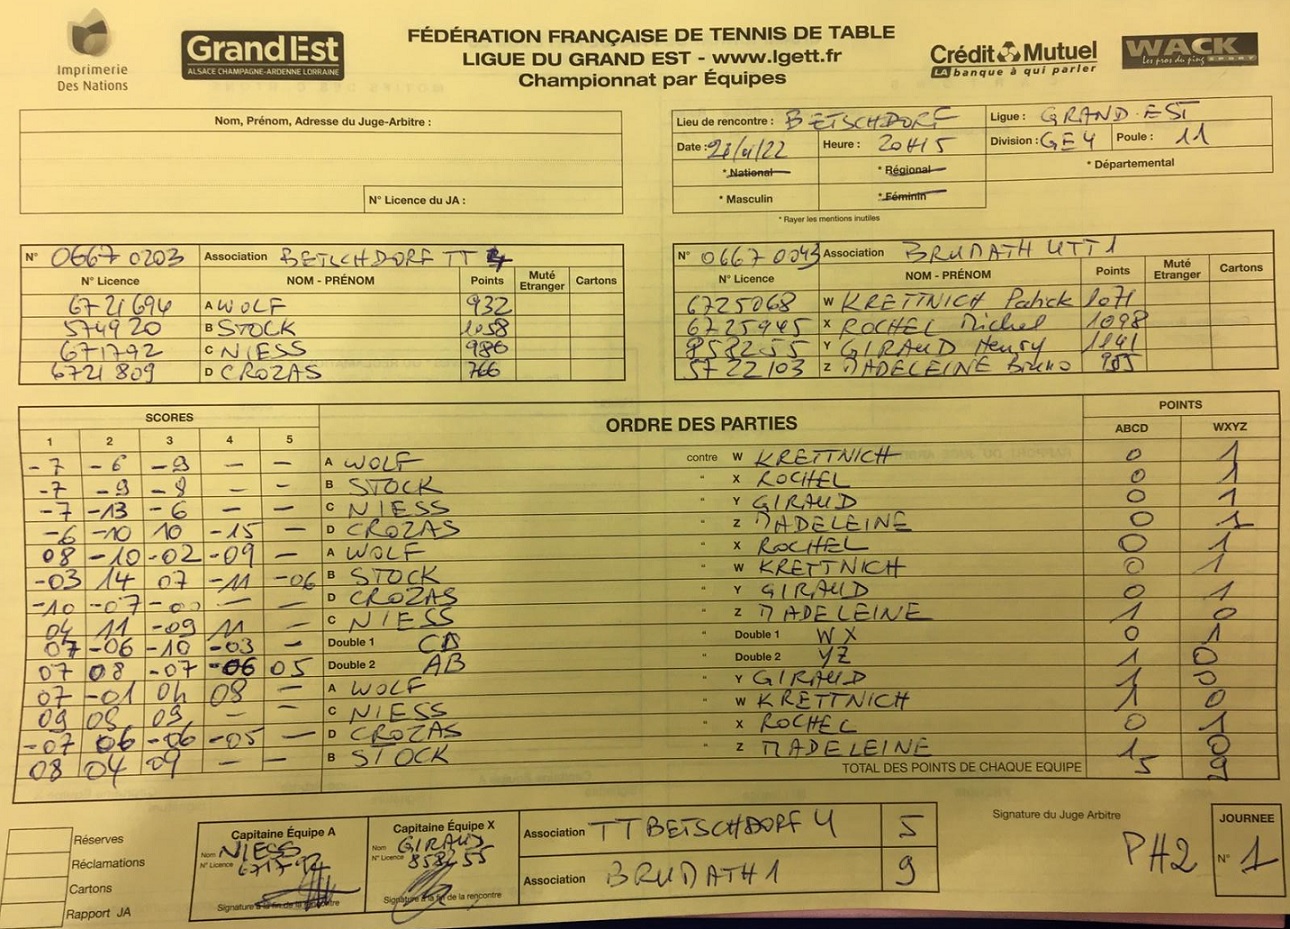 Imprimerie
Des Nations
GrandEst
ALSACE CHAMPAGNE-ARDENNE LORRAINE
FÉDÉRATION FRANÇAISE DE TENNIS DE TABLE
LIGUE DU GRAND EST - www.lgett.fr
Championnat par Équipes
Crédit Mutuel
LA banque à qui parler
WACK
les pros du ping SPORT
Nom, Prénom, Adresse du Juge-Arbitre :
N° Licence du JA :
Lieu de rencontre : BETSCHDORF Ligue : GRAND-EST
Date : Heure : 20H15 Division : GE4 Poule : 11
* National * Régional * Départemental
* Masculin * Féminin
* Rayer les mentions inutiles
N° 0667 0203 Association BETSCHDORF TT 4
N° Licence NOM - PRÉNOM Points Muté Etranger Cartons
6721694 A WOLF 932
574920 B STOCK 1058
671792 C NIESS 986
6721809 D CROZAS 766
N° 0667 0043 Association BRUDATH UTT 1
N° Licence NOM - PRÉNOM Points Muté Etranger Cartons
6725068 W KRETTNICH Patrick 1071
6725945 X ROCHEL Michel 1098
858255 Y GIRAUD Henry 1141
5722103 Z MADELEINE Bruno
SCORES ORDRE DES PARTIES POINTS
1 2 3 4 5 ABCD WXYZ
-7 -6 -9 - - A WOLF contre W KRETTNICH 0 1
-7 -9 -8 - - B STOCK " X ROCHEL 0 1
-7 -13 -6 - - C NIESS " Y GIRAUD 0 1
-6 -10 10 -15 - D CROZAS " Z MADELEINE 0 1
08 -10 -02 -09 - A WOLF " X ROCHEL 0 1
-03 14 07 -11 -06 B STOCK " W KRETTNICH 0 1
-10 -07 - - D CROZAS " Y GIRAUD 0 1
04 11 -09 11 - C NIESS " Z MADELEINE 1 0
07 -06 -10 -03 - Double 1 CD " Double 1 WX 0 1
07 08 -07 -06 05 Double 2 AB " Double 2 YZ 1 0
07 -01 04 08 - A WOLF " Y GIRAUD 1 0
09 08 09 - - C NIESS " W KRETTNICH 1 0
-07 06 -06 -05 - D CROZAS " X ROCHEL 0 1
08 04 09 - - B STOCK " Z MADELEINE 1 0
TOTAL DES POINTS DE CHAQUE EQUIPE 5 9
Réserves
Réclamations
Cartons
Rapport JA
Capitaine Équipe A
Nom NIESS
N° Licence 671792
Signature à la fin de la rencontre
Capitaine Équipe X
Nom GIRAUD
N° Licence 858255
Signature à la fin de la rencontre
Association TT BETSCHDORF 4 5
Association BRUDATH 1 9
Signature du Juge Arbitre
PH2
JOURNEE
N° 1